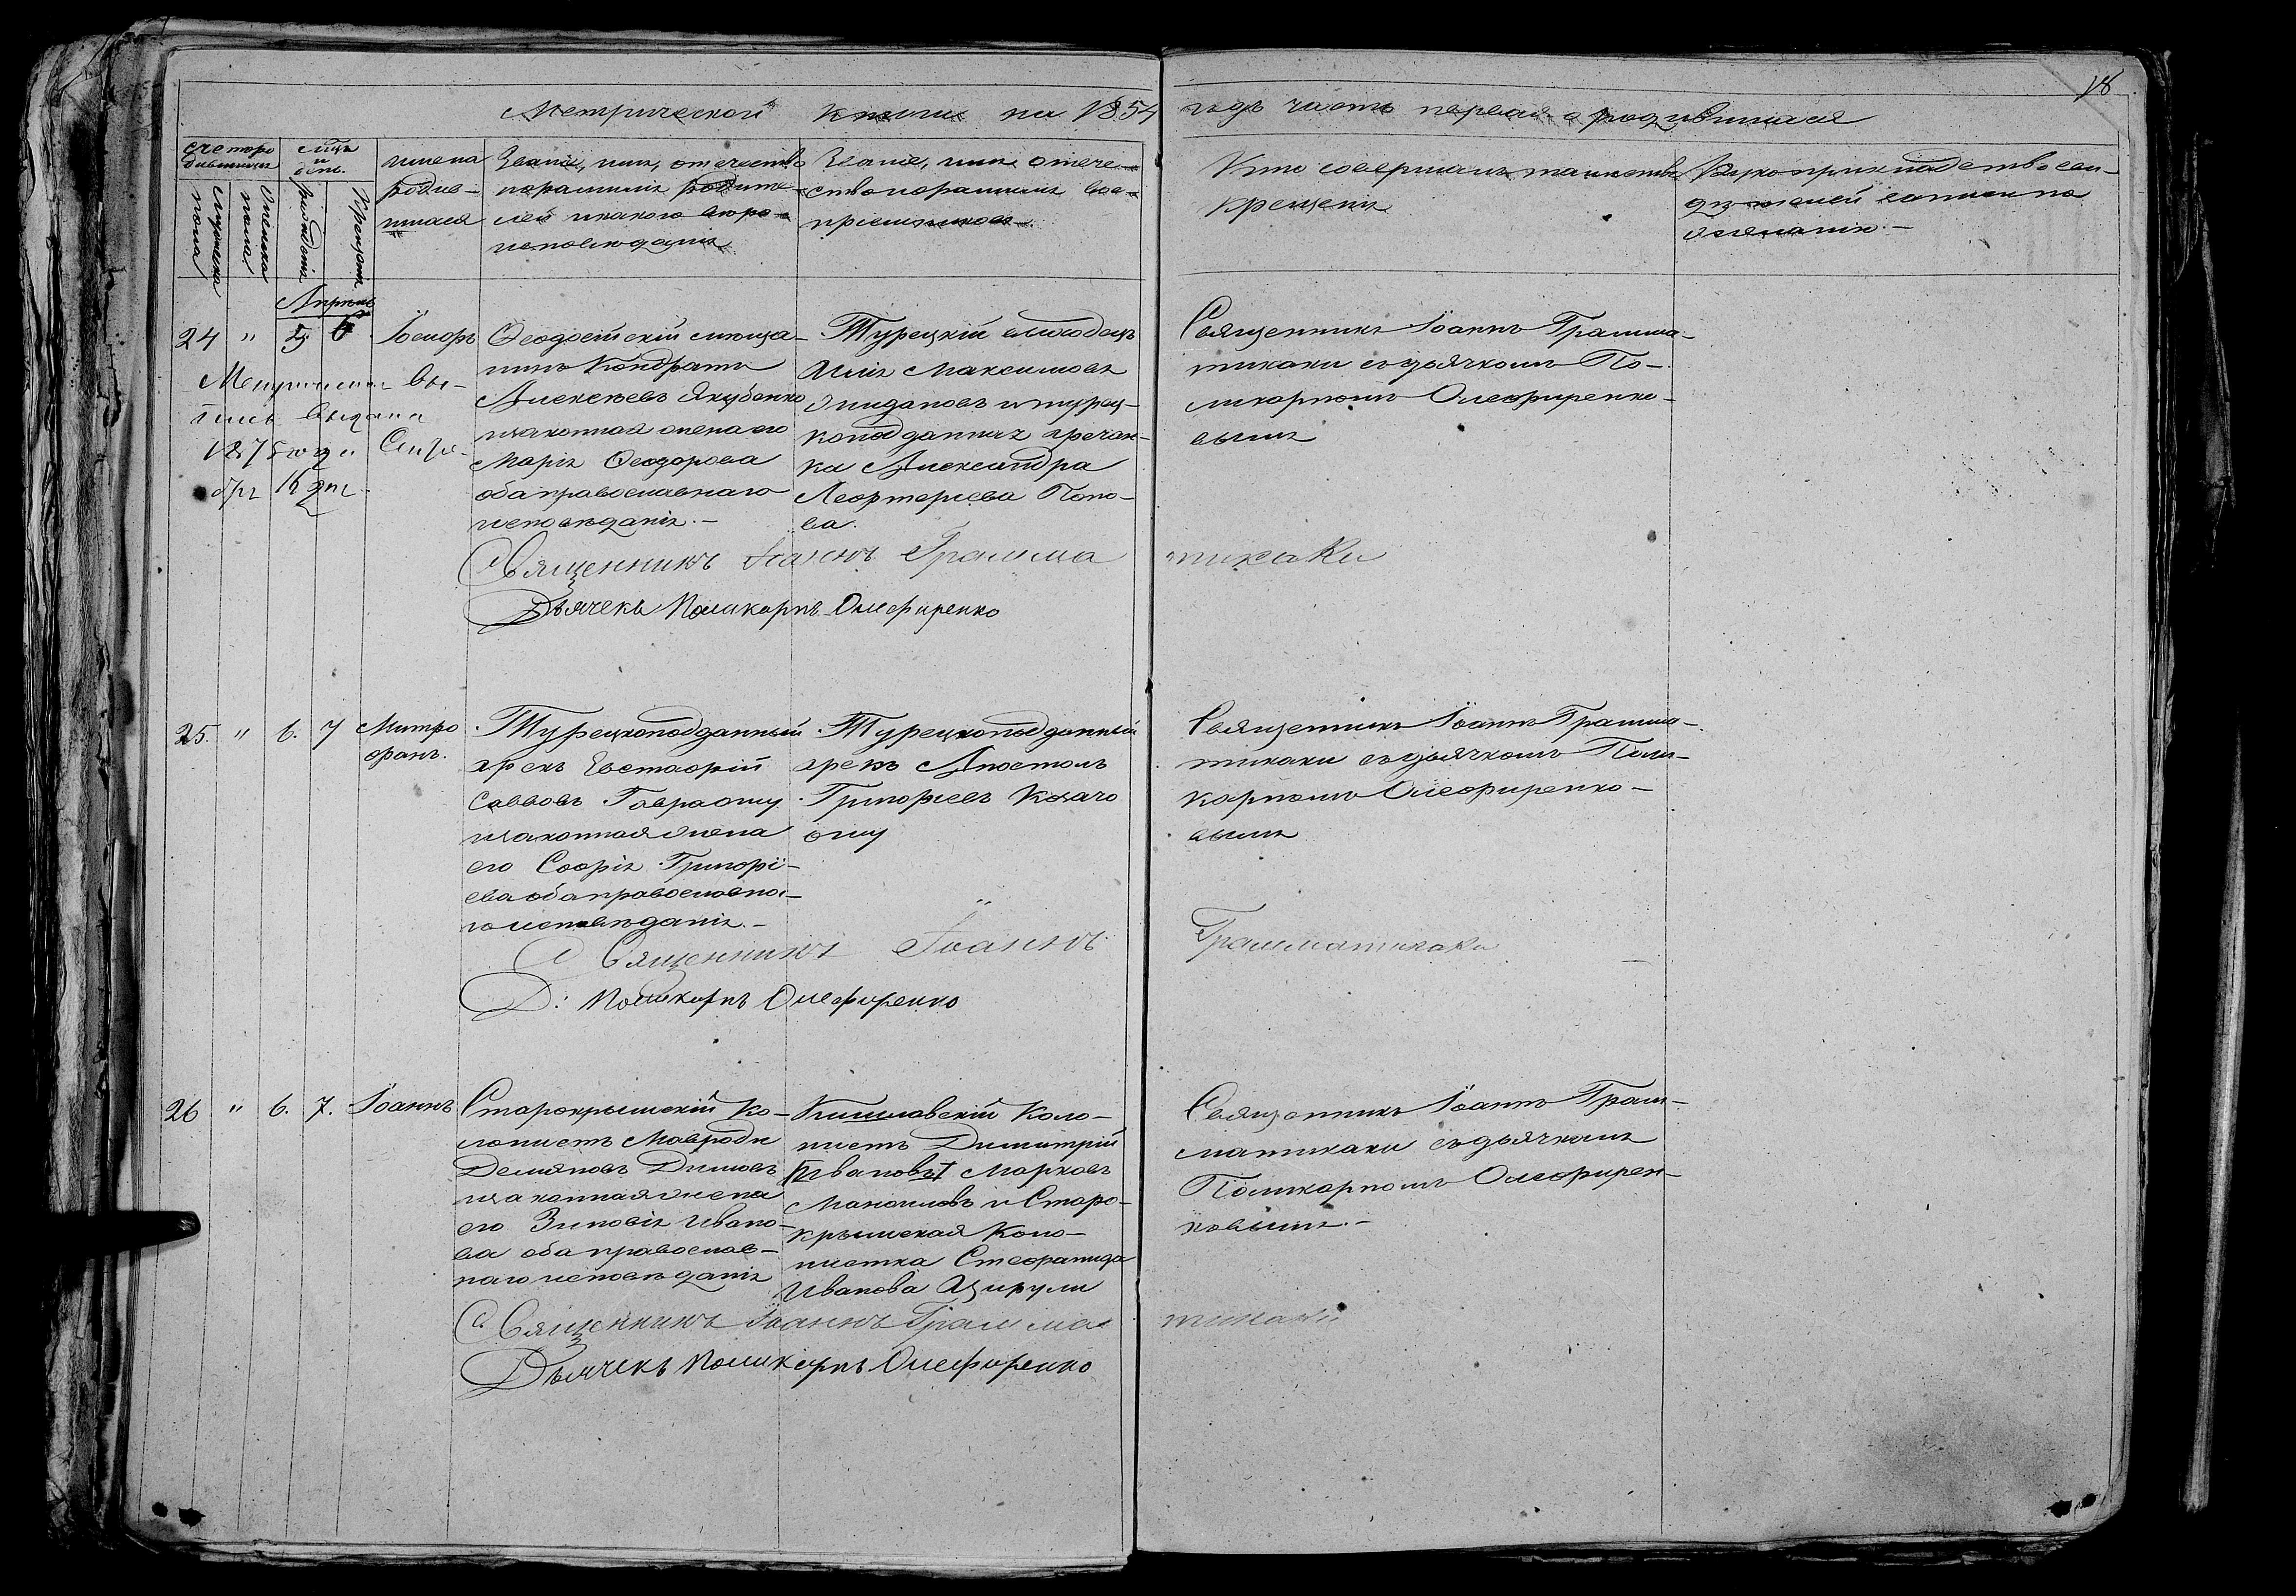 18
Метрической книги на 1854 годъ часть первая о родившихся
счетъ родившихся
мужеска пола
женска пола
мѣсяцъ и день.
рожденія
крещенія
имена родив-
шихся
Званіе, имя, отечество
и фамилія родите-
лей и какого вѣро-
исповѣданія
Званіе, имя отече-
ство и фамилія вос-
пріемниковъ.
Кто совершалъ таинство
крещенія
Рукоприкладство сви-
дѣтелей записи по
желанію.–
Апрель
24 " 5 6 Іосифъ
Метрическая вы-
пись выдана
1875 года Сентя-
бря 15 дня
Ѳеодосійскій мѣща-
нинъ Кондратъ
Алексѣевъ Якубенко
и законная жена его
Марія Ѳеодорова
оба православнаго
исповѣданія.–
Турецкій
Максимовъ
и турец-
коподданная гречан-
ка Александра
Леофтерьева Попо-
ва.
Священникъ Іоаннъ Грамма-
тикаки съ дьячкомъ По-
ликарпомъ Олефиренко-
вымъ
Священникъ Іоаннъ Грамматикаки
Дьячекъ Поликарпъ Олефиренко
25. " 6. 7 Митро
фанъ.
Турецкоподданный
грекъ Евстафій
Саввовъ Гавраогу
и законная жена
его Софія Григорі-
ева оба православна-
го исповѣданія.–
Турецкоподданный
грекъ Апостолъ
Григорьевъ Казачо
огу
Священникъ Іоаннъ Грамма-
тикаки съ дьячкомъ Поли-
карпомъ Олефиренко-
вымъ
Священникъ Іоаннъ Грамматикаки
Д: Поликарпъ Олефиренко
26 " 6. 7. Іоаннъ
Старокрымскій ко-
лонистъ Мавроди
Демяновъ Димовъ
и законная жена
его Зиновія Ивано-
ва оба православ-
наго исповѣданія
Кишлавскій Коло-
нистъ Димитрій
[Ивановъ] Марковъ
Маноиловъ и Старо-
крымская Коло-
нистка Стефанида
Иванова Цирули
Священникъ Іоаннъ Грам-
матикаки съ дьячкомъ
Поликарпомъ Олефирен-
ковымъ.–
Священникъ Іоаннъ Грамматикаки
Дьячекъ Поликарпъ Олефиренко